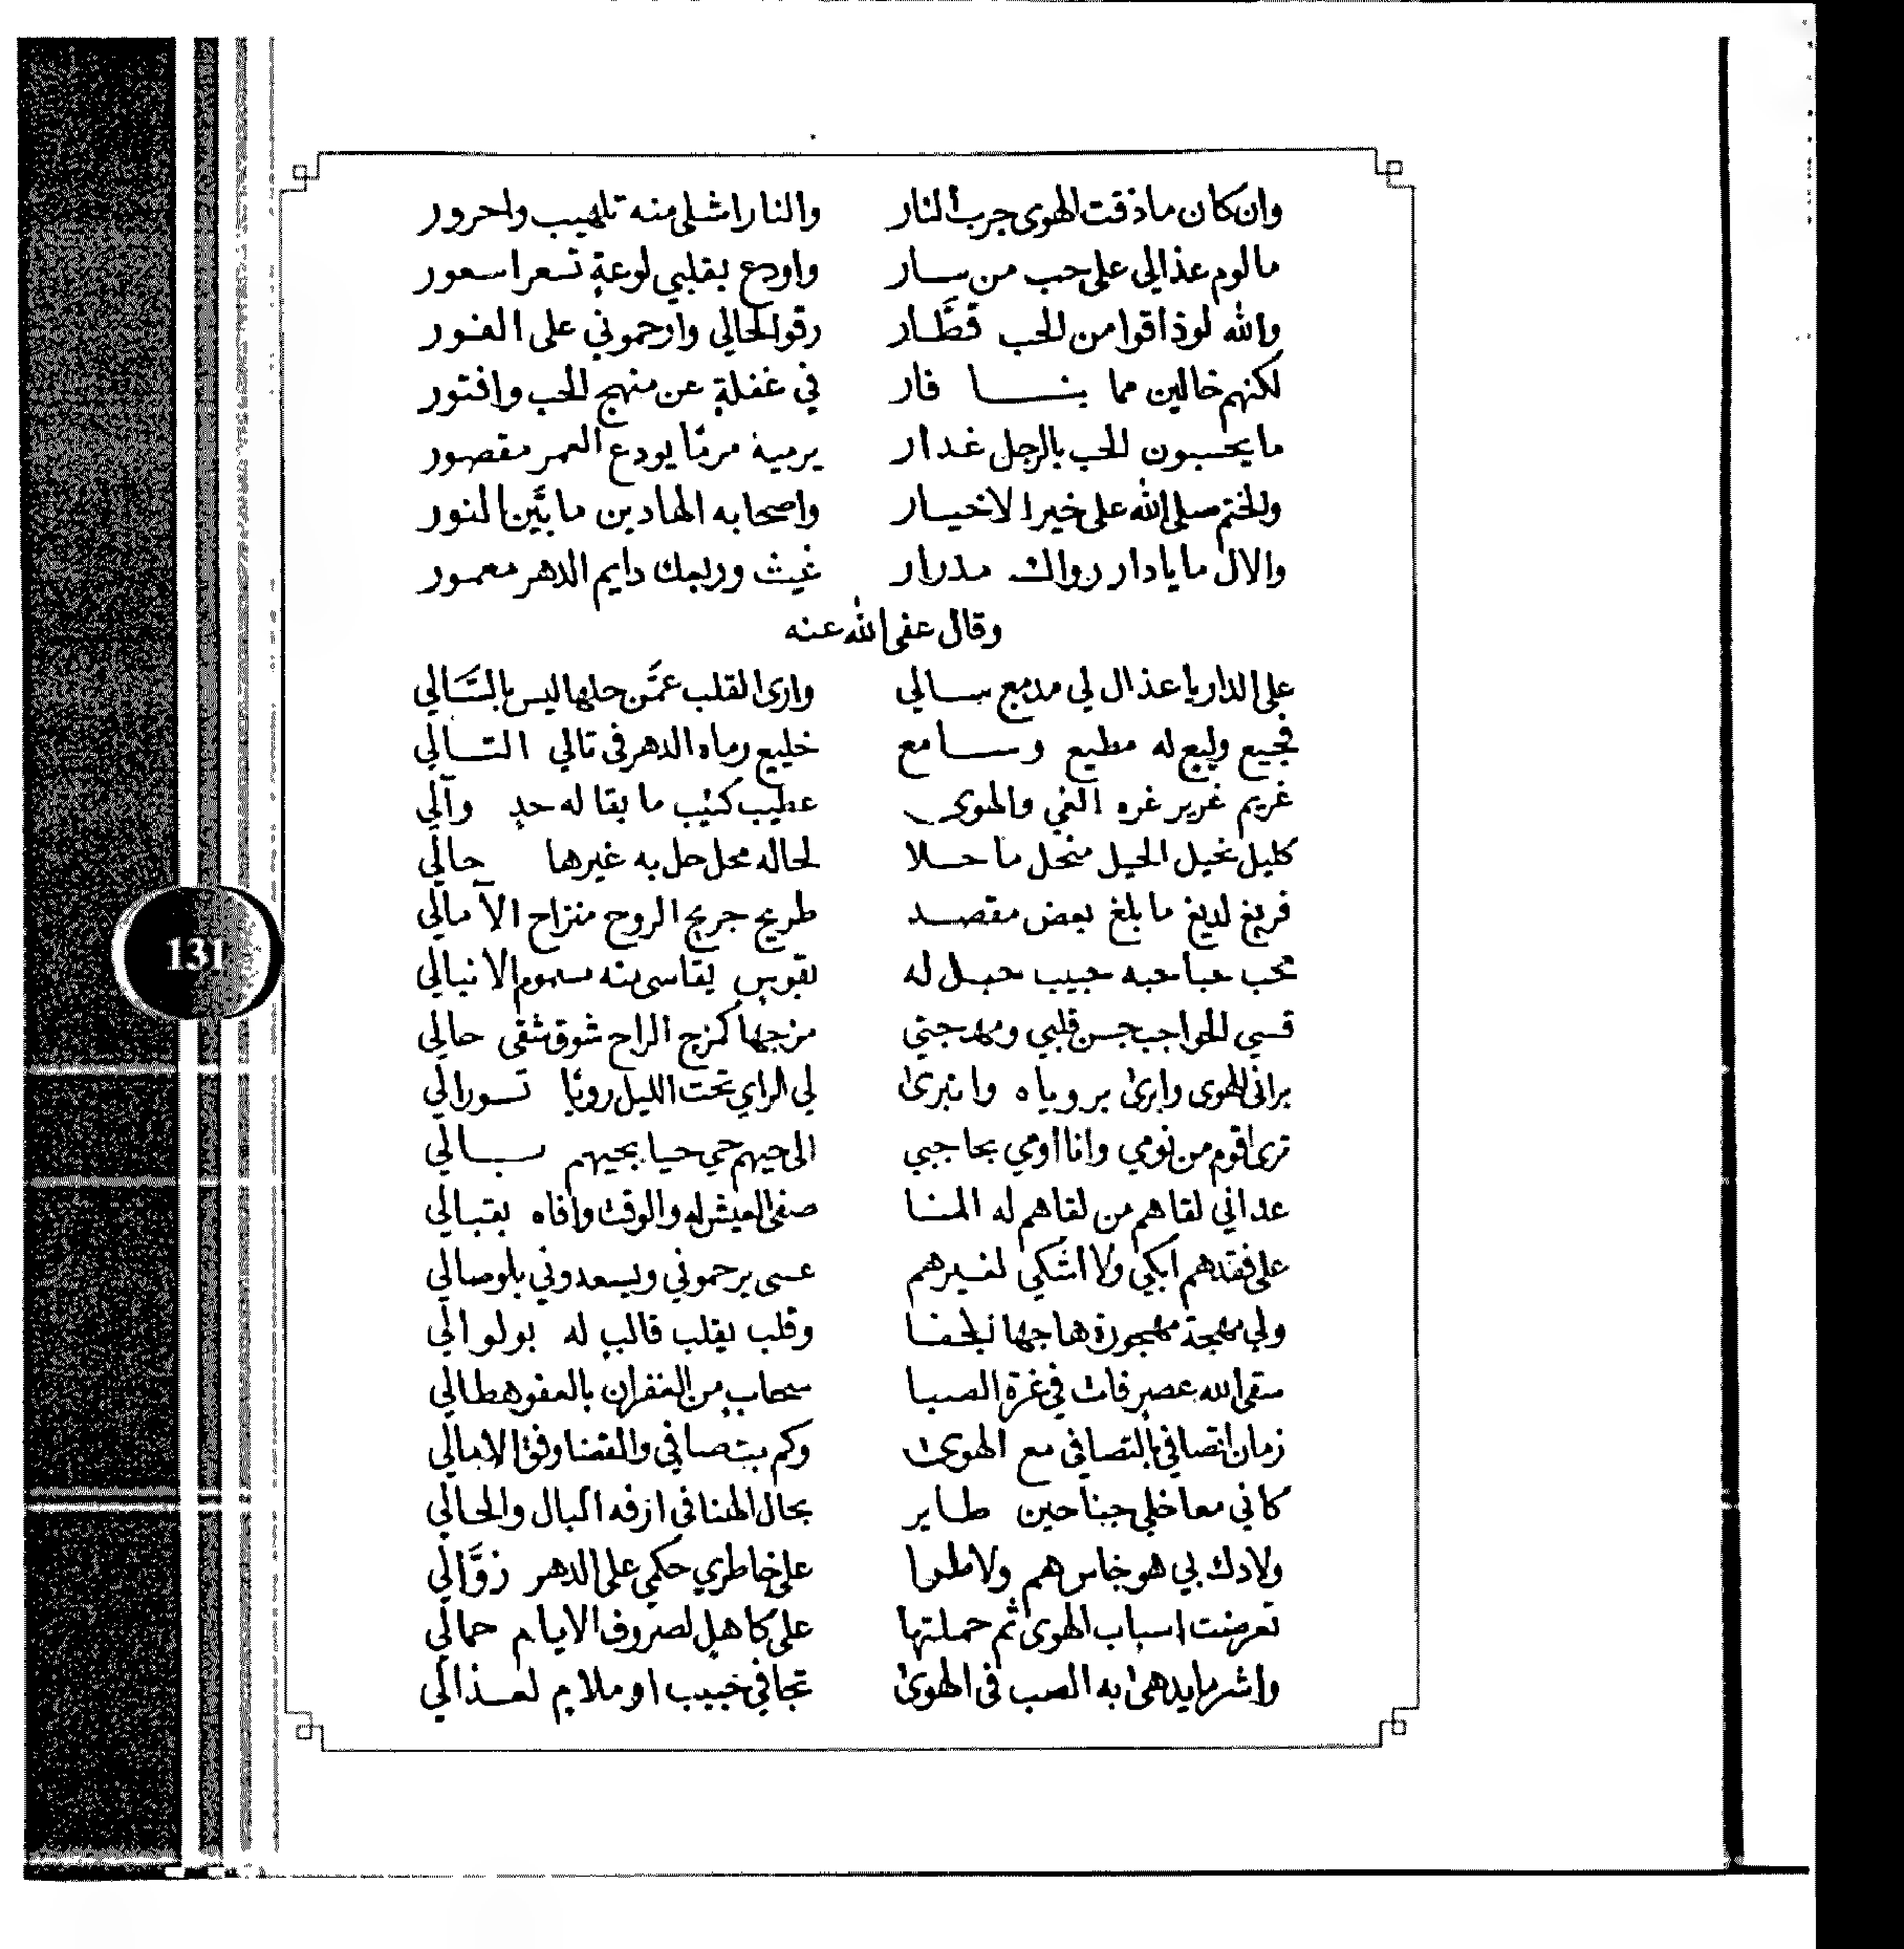 وان كان ما ذقت الهوى جرب النار والنار اشلى منه تلهيب واحرور
ما لوم عذالي على حب من سار واودع بقلبي لوعةٍ تسعر اسعور
والله لو ذاقوا من الحب قطَّار رقوا لحالي وارحموني على الفور
لكنهم خالين مما بنا فار في غفلةٍ عن منهج الحب وافتور
ما يحسبون الحب بالرجل غدار يرميه مرمًا يودع العمر مقصور
والختم صلى الله على خير الاخيار واصحابه الهادين ما بَيَّن النور
والال ما يا دار رواك مدرار غيث وربعك دايم الدهر معمور
وقال عفى الله عنه
على الدار يا عذال لي مدمع سالي وارى القلب عمَّن حلها ليس بالسَّالي
فجيع وليع له مطيع وسامع خليع رماه الدهر في تالي التالي
غريم غرير غره الغي والهوى عطيب كئيب ما بقا له حدٍ والي
كليل نحيل الحيل منحل ما حلا لحاله محل حل به غيرها حالي
فريغ لديغ ما بلغ بعض مقصد طريح جريح الروح منزاح الآمالي
محب حبا حبه حبيب حبل له بقوسٍ يقاسي منه سموم الانيالي
قسي الحواجب جسن قلبي ومهجتي مزجها كمزج الراح شوق شقى حالي
براني الهوى وابرى بروياه وانبرى لي الراي تحت الليل رويًا تسورالي
ترى اقوم من نومي وانا اومي بحاجبي الى حيهم حي حيا بحيهم سبالي
عداني لقاهم من لقاهم له المنا صفى العيش له والوقت وافاه بقبالي
على فقدهم ابكي ولا اشتكي لغيرهم عسى يرحموني ويسعدوني بلوصالي
ولي مهجة مهجورة هاجها الجفا وقلب يقلب قالبٍ له بولوالي
سقى الله عصر فات في غرة الصبا سحابٍ من الغفران بالعفو هطالي
زمان اتصافي بالتصافي مع الهوى وكم بت صافي والقضا وفق الامالي
كاني معا خلي جناحين طاير بحال الهنا في ازفه البال والحالي
ولا دك بي هوجاس هم ولا طرا على خاطري حكمي على الدهر زوَّالي
تعرضت اسباب الهوى ثم حملتها على كاهلٍ لصروف الايام حمالي
واشر ما يدهى به الصب في الهوى تجافي خبيب او ملامٍ لعذالي
131